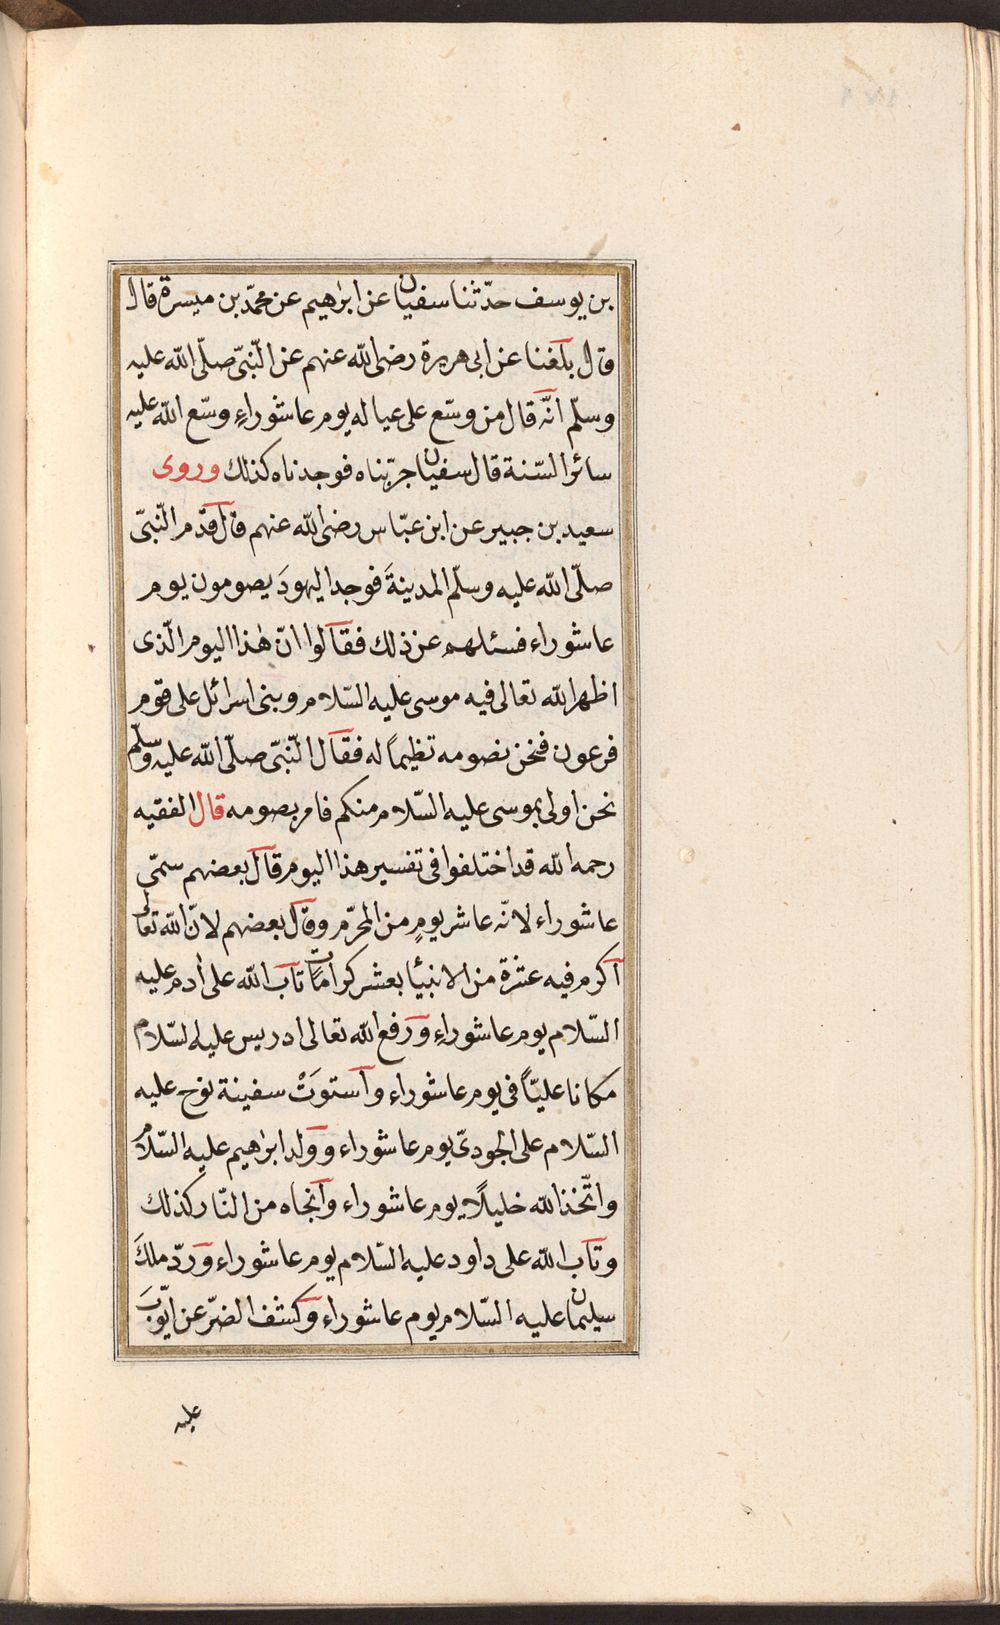 بن يوسف حدّثنا سفيان عن ابرٰهيم عن محمّد بن ميسرة قال
قال بلغنا عن ابى هريرة رضى الله عنهم عن النّبىّ صلّى الله عليه
وسلّم انّه قال من وسّع على عياله يوم عاشوراءِ وسّع الله عليه
سائر السّنة قال سفيان جرّبناه فوجدناه كذلك وروى
سعيد بن جبير عن ابن عبّاس رضى الله عنهم قال قدّم النّبىّ
صلّى الله عليه وسلّم المدينةَ فوجد اليهودَ يصومون يوم
عاشوراء فسئلهم عن ذلك فقالوا انّ هٰذا اليوم الّذى
اظهر الله تعالى فيه موسى عليه السّلام وبنى اسرائل على قوم
فرعون فنحن نصومه تظيماً له فقال النّبىّ صلّى الله عليه وسلّم
نحن اولى بموسى عليه السّلام منكم فامر بصومه قال الفقيه
رحمه الله قد اختلفوا فى تفسير هذا اليوم قال بعضهم سمّى
عاشوراء لانّه عاشر يومٍ من المحرّم وقال بعضهم لانّ الله تعالى
اكرم فيه عشرة من الانبيٰا بعشر كرامات تاب الله على اٰدم عليه
السّلام يوم عاشوراءِ ورفع الله تعالى ادريس عليه السّلام
مكانا عليّاً فى يوم عاشوراء واستوَتْ سفينة نوح عليه
السّلام على الجودىّ يوم عاشوراء وولد ابرٰهيم عليه السّلام
واتّخذ الله خليلًا يوم عاشوراء وانجاه من النّار كذلك
وتاب الله على داود عليه السّلام يوم عاشوراء وردّ ملكَ
سيلمان عليه السّلام يوم عاشوراء وكشف الضرّ عن ايّوبَ
عليه